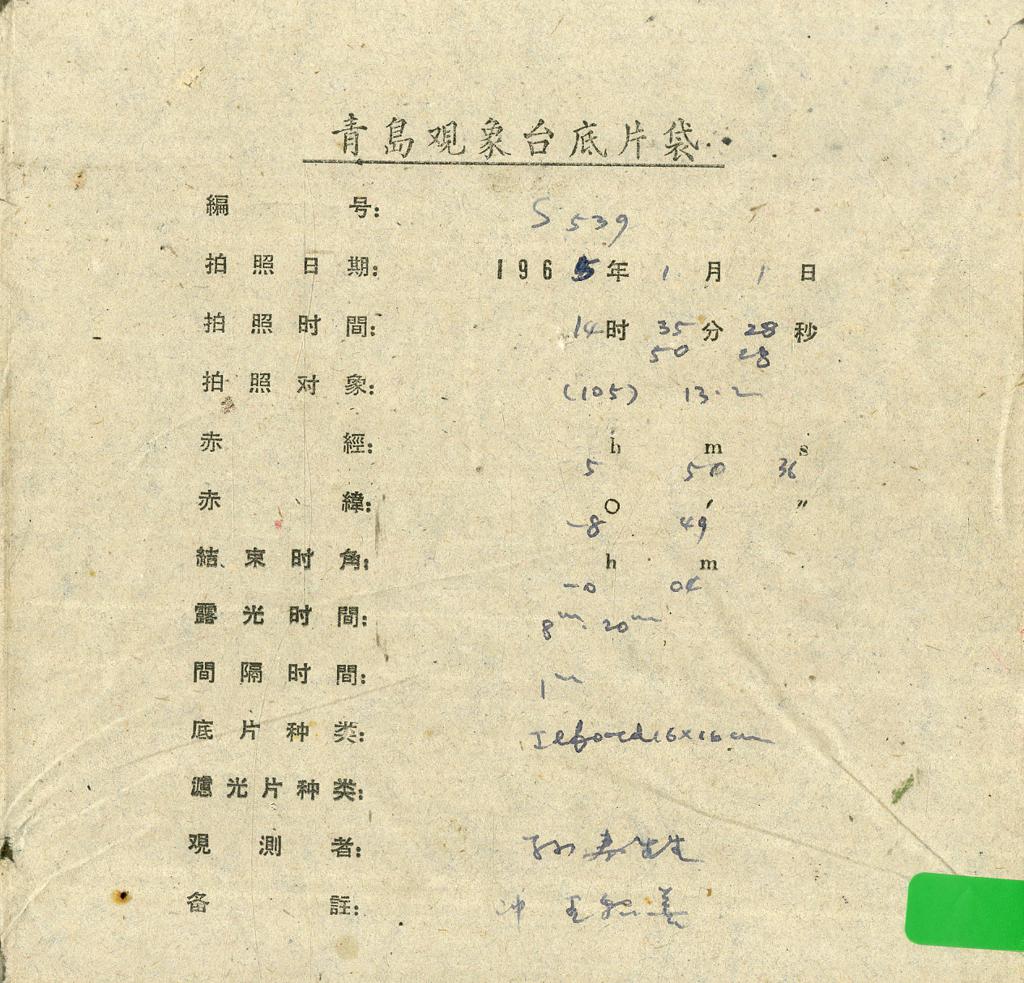 青島观象台底片袋
編号: S 539
拍照日期: 1965年 1月 1日
拍照时間: 14时 35分 28秒
50 28
拍照对象: (105) 13.2
赤經: h m s
5 50 36
赤緯: ○ ′ ″
-8 49
結束时角: h m
-0 04
露光时間: 8m. 20m
間隔时間: 1m
底片种类: Ilford 16×16cm
濾光片种类:
观測者: 孙寿
备註: 冲 王